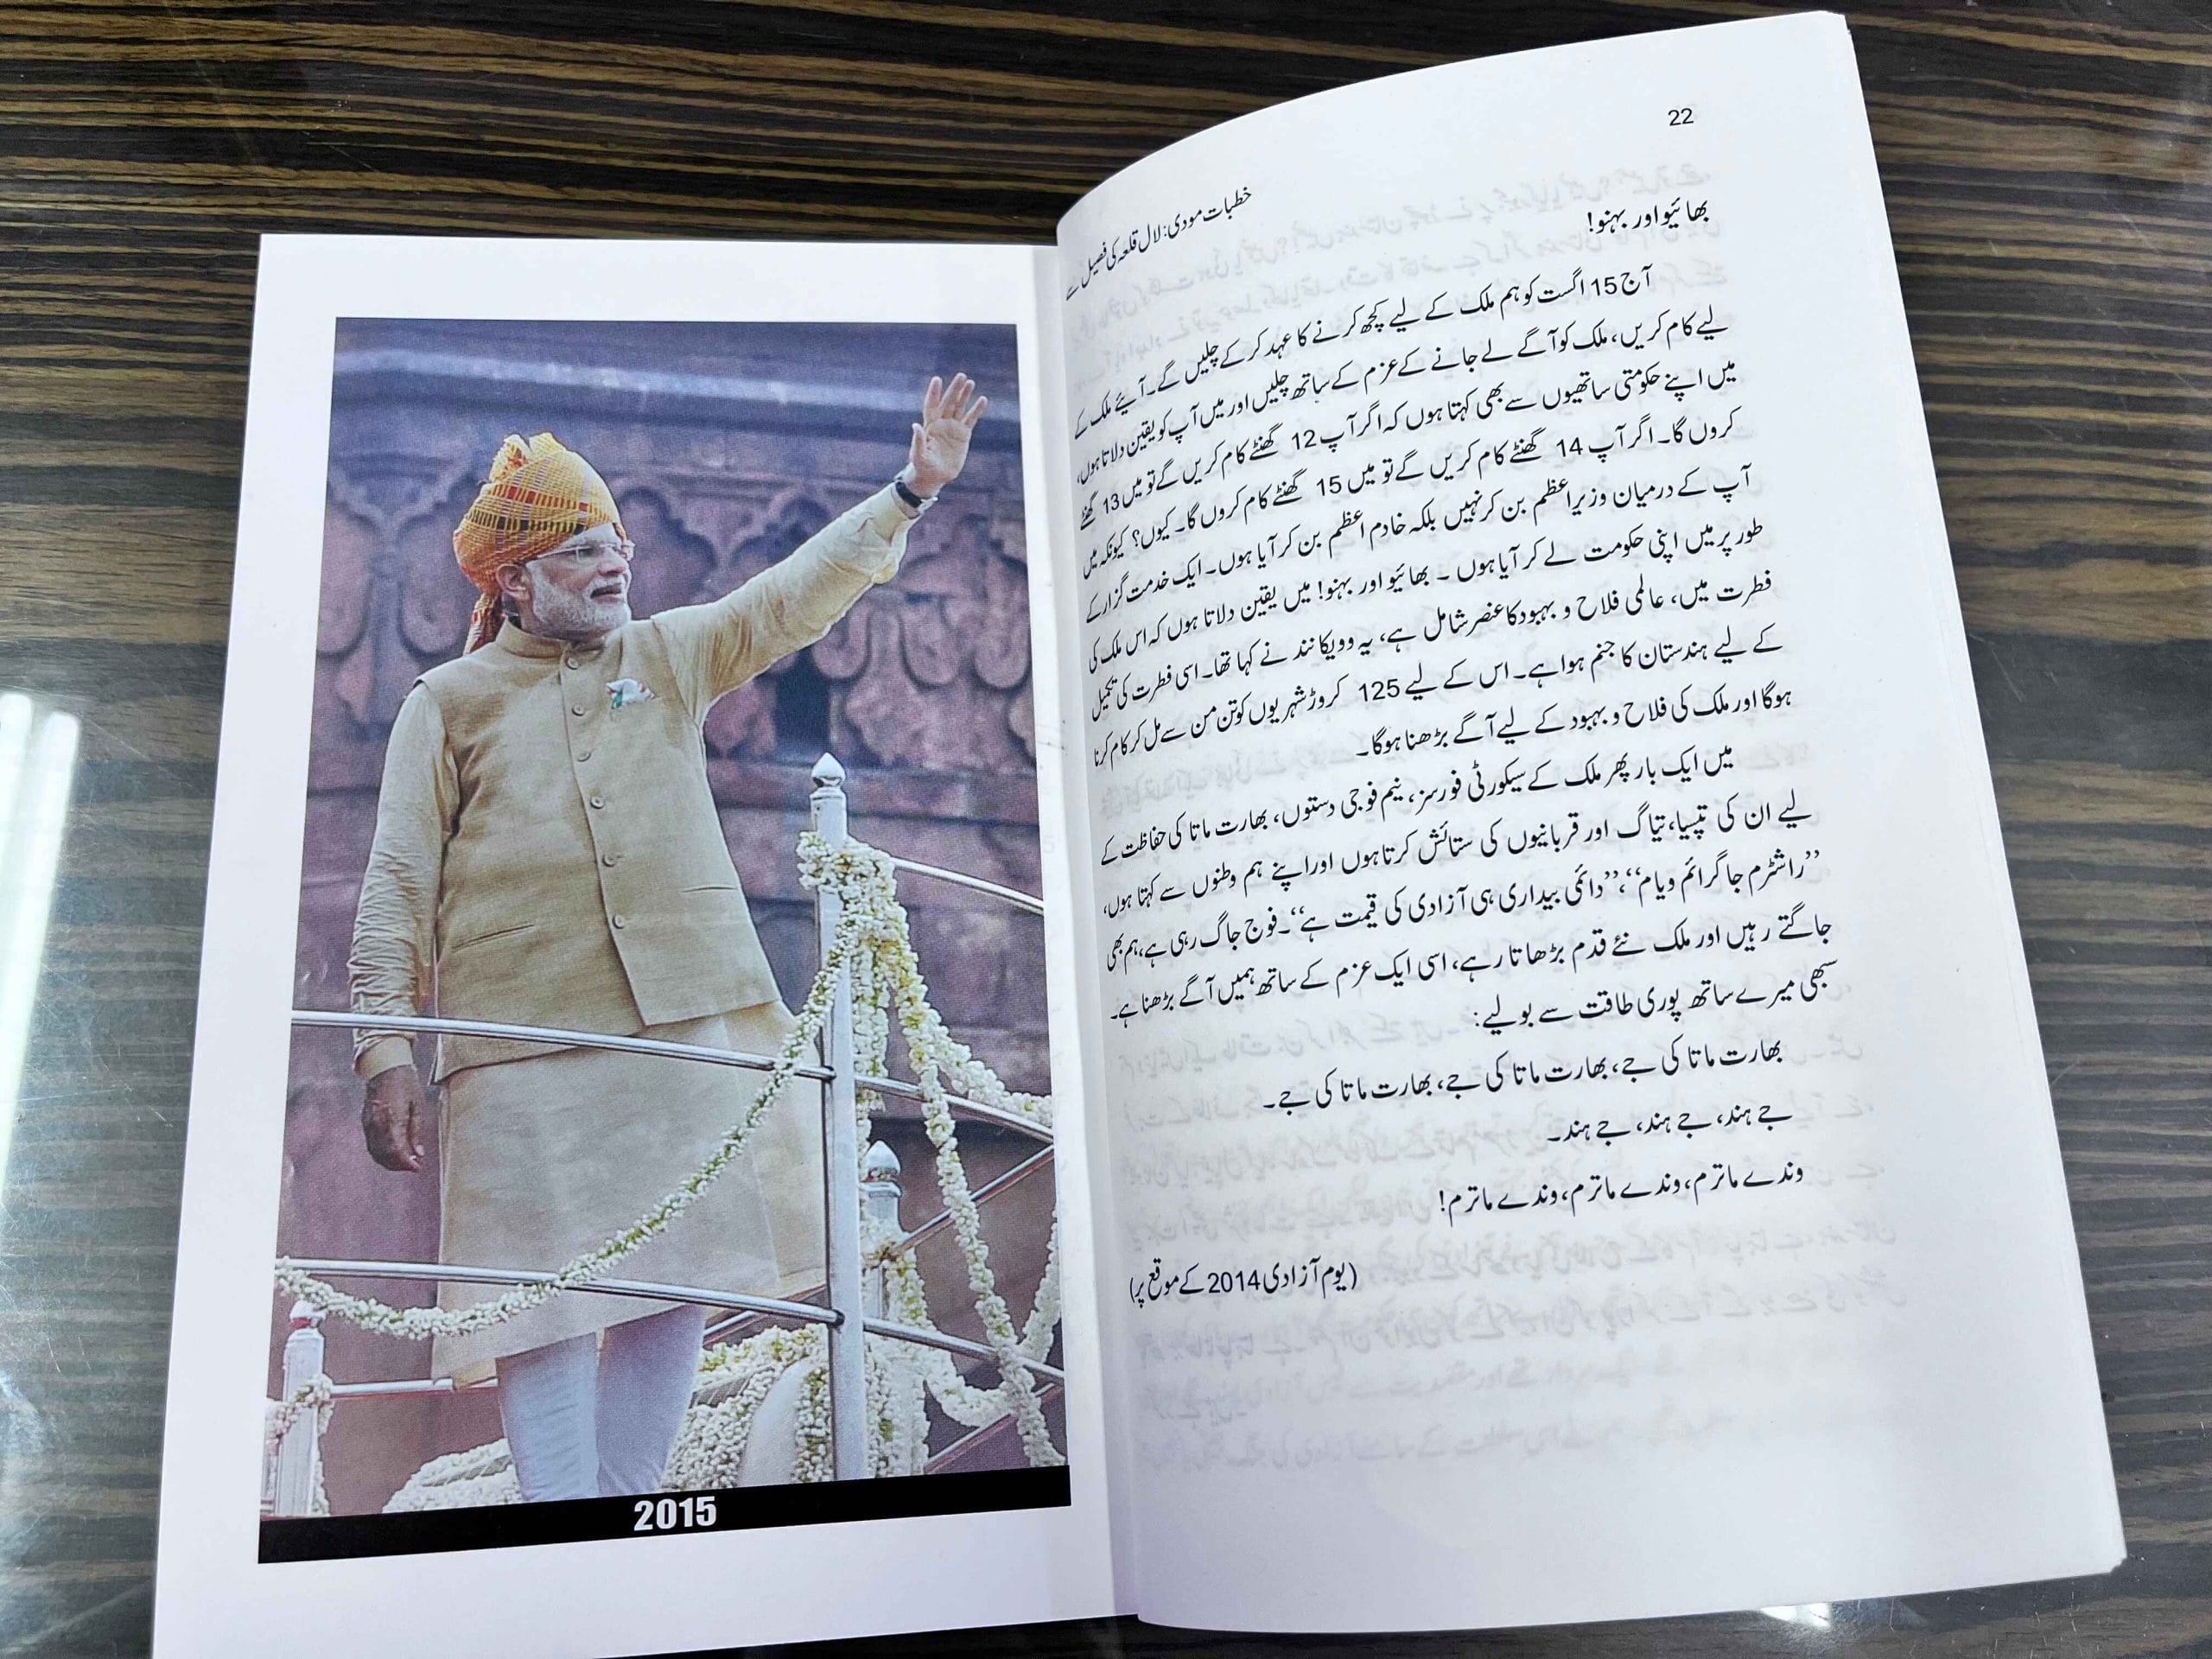 22
خطبات مودی: لال قلعہ کی فصیل سے
بھائیو اور بہنو!
آج 15 اگست کو ہم ملک کے لیے کچھ کرنے کا عہد کرکے چلیں گے۔ آیئے ملک کے
لیے کام کریں، ملک کو آگے لے جانے کے عزم کے ساتھ چلیں اور میں آپ کو یقین دلاتا ہوں،
میں اپنے حکومتی ساتھیوں سے بھی کہتا ہوں کہ اگر آپ 12 گھنٹے کام کریں گے تو میں 13 گھنٹے
کروں گا۔ اگر آپ 14 گھنٹے کام کریں گے تو میں 15 گھنٹے کام کروں گا۔ کیوں؟ کیونکہ میں
آپ کے درمیان وزیراعظم بن کر نہیں بلکہ خادم اعظم بن کر آیا ہوں۔ ایک خدمت گزار کے
طور پر میں اپنی حکومت لے کر آیا ہوں ۔ بھائیو اور بہنو! میں یقین دلاتا ہوں کہ اس ملک کی
فطرت میں، عالمی فلاح و بہبود کا عنصر شامل ہے، یہ وویکانند نے کہا تھا۔ اسی فطرت کی تکمیل
کے لیے ہندستان کا جنم ہوا ہے۔ اس کے لیے 125 کروڑ شہریوں کو تن من سے مل کر کام کرنا
ہوگا اور ملک کی فلاح و بہبود کے لیے آگے بڑھنا ہوگا۔
میں ایک بار پھر ملک کے سیکورٹی فورسز، نیم فوجی دستوں، بھارت ماتا کی حفاظت کے
لیے ان کی تپسیا، تیاگ اور قربانیوں کی ستائش کرتا ہوں اور اپنے ہم وطنوں سے کہتا ہوں،
’’راشٹرم جاگرائم ویام‘‘، ’’دائمی بیداری ہی آزادی کی قیمت ہے‘‘۔ فوج جاگ رہی ہے، ہم بھی
جاگتے رہیں اور ملک نئے قدم بڑھاتا رہے، اسی ایک عزم کے ساتھ ہمیں آگے بڑھنا ہے۔
سبھی میرے ساتھ پوری طاقت سے بولیے:
بھارت ماتا کی جے، بھارت ماتا کی جے، بھارت ماتا کی جے۔
جے ہند، جے ہند، جے ہند۔
وندے ماترم، وندے ماترم، وندے ماترم!
(یوم آزادی 2014 کے موقع پر)
2015